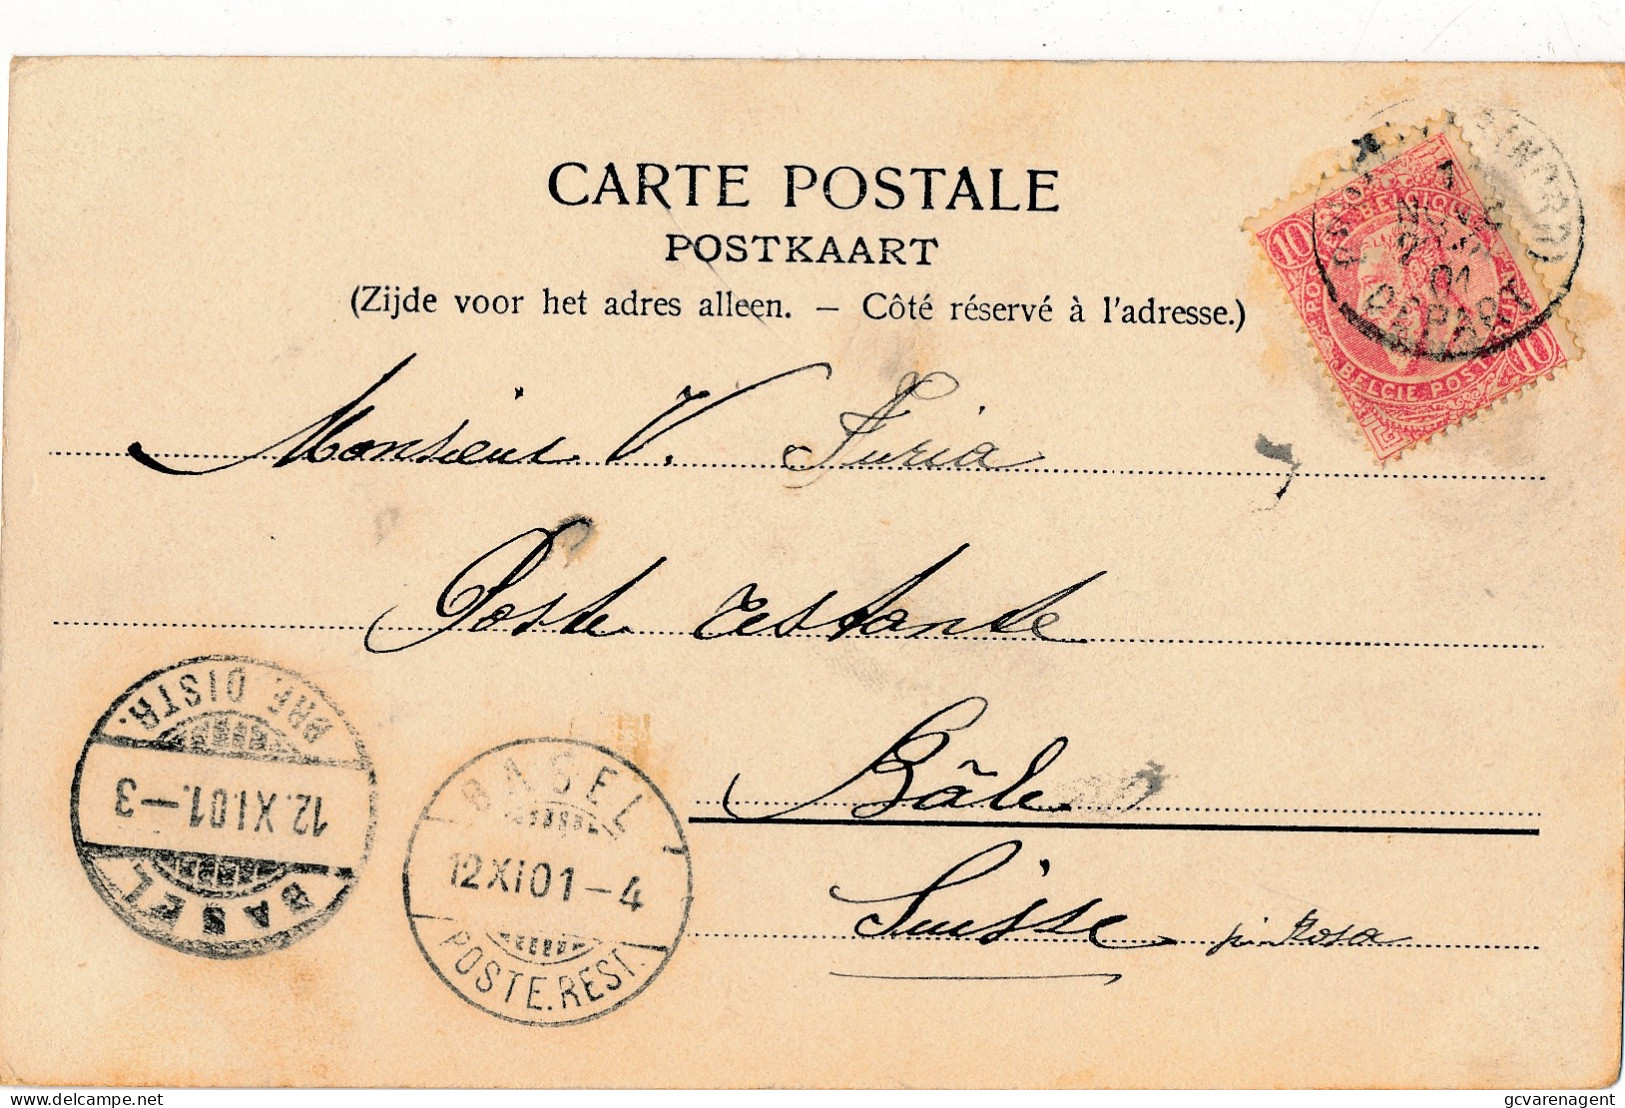 CARTE POSTALE
POSTKAART
(Zijde voor het adres alleen. – Côté réservé à l'adresse.)
10 BELGIQUE 10
BELGIE POSTERIJEN
NOV
01
DEPART
Monsieur V. Furia
Poste restante
Bâle
Suisse
BRF. DISTR.
12.XI.01.–3
BASEL
BASEL
12 XI 01 – 4
POSTE.REST.
delcampe.net
gcvarenagent